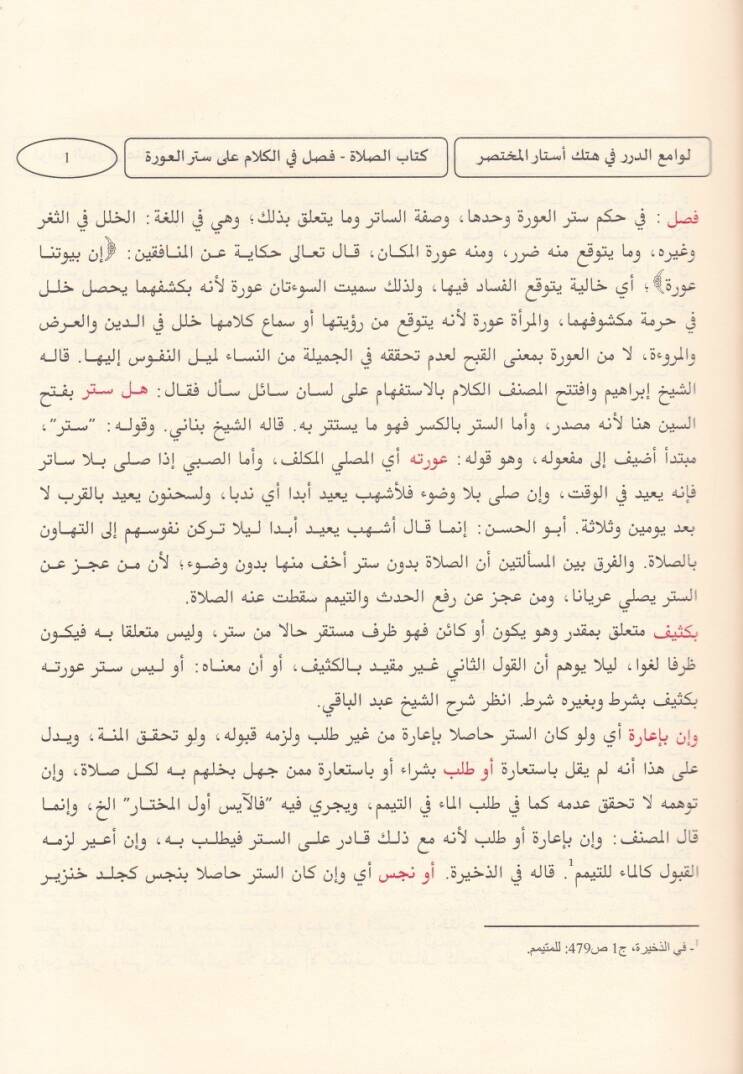 لوامع الدرر في هتك أستار المختصر
كتاب الصلاة - فصل في الكلام على ستر العورة
1
فصل: في حكم ستر العورة وحدها، وصفة الساتر وما يتعلق بذلك؛ وهي في اللغة: الخلل في الثغر
وغيره، وما يتوقع منه ضرر، ومنه عورة المكان، قال تعالى حكاية عن المنافقين: ﴿إن بيوتنا
عورة﴾؛ أي خالية يتوقع الفساد فيها، ولذلك سميت السوءتان عورة لأنه بكشفهما يحصل خلل
في حرمة مكشوفهما، والمرأة عورة لأنه يتوقع من رؤيتها أو سماع كلامها خلل في الدين والعرض
والمروءة، لا من العورة بمعنى القبح لعدم تحققه في الجميلة من النساء لميل النفوس إليها. قاله
الشيخ إبراهيم وافتتح المصنف الكلام بالاستفهام على لسان سائل سأل فقال: هل ستر بفتح
السين هنا لأنه مصدر، وأما الستر بالكسر فهو ما يستتر به. قاله الشيخ بناني. وقوله: "ستر"،
مبتدأ أضيف إلى مفعوله، وهو قوله: عورته أي المصلي المكلف، وأما الصبي إذا صلى بلا ساتر
فإنه يعيد في الوقت، وإن صلى بلا وضوء فلأشهب يعيد أبدا أي ندبا، ولسحنون يعيد بالقرب لا
بعد يومين وثلاثة. أبو الحسن: إنما قال أشهب يعيد أبدا ليلا تركن نفوسهم إلى التهاون
بالصلاة. والفرق بين المسألتين أن الصلاة بدون ستر أخف منها بدون وضوء؛ لأن من عجز عن
الستر يصلي عريانا، ومن عجز عن رفع الحدث والتيمم سقطت عنه الصلاة.
بكثيف متعلق بمقدر وهو يكون أو كائن فهو ظرف مستقر حالا من ستر، وليس متعلقا به فيكون
ظرفا لغوا، ليلا يوهم أن القول الثاني غير مقيد بالكثيف، أو أن معناه: أو ليس ستر عورته
بكثيف بشرط وبغيره شرط. انظر شرح الشيخ عبد الباقي.
وإن بإعارة أي ولو كان الستر حاصلا بإعارة من غير طلب ولزمه قبوله، ولو تحقق المنة، ويدل
على هذا أنه لم يقل باستعارة أو طلب بشراء أو باستعارة ممن جهل بخلهم به لكل صلاة، وإن
توهمه لا تحقق عدمه كما في طلب الماء في التيمم، ويجري فيه "فالآيس أول المختار" الخ، وإنما
قال المصنف: وإن بإعارة أو طلب لأنه مع ذلك قادر على الستر فيطلب به، وإن أعير لزمه
القبول كالماء للتيمم1. قاله في الذخيرة. أو نجس أي وإن كان الستر حاصلا بنجس كجلد خنزير
1- في الذخيرة، ج1 ص479: للمتيمم.